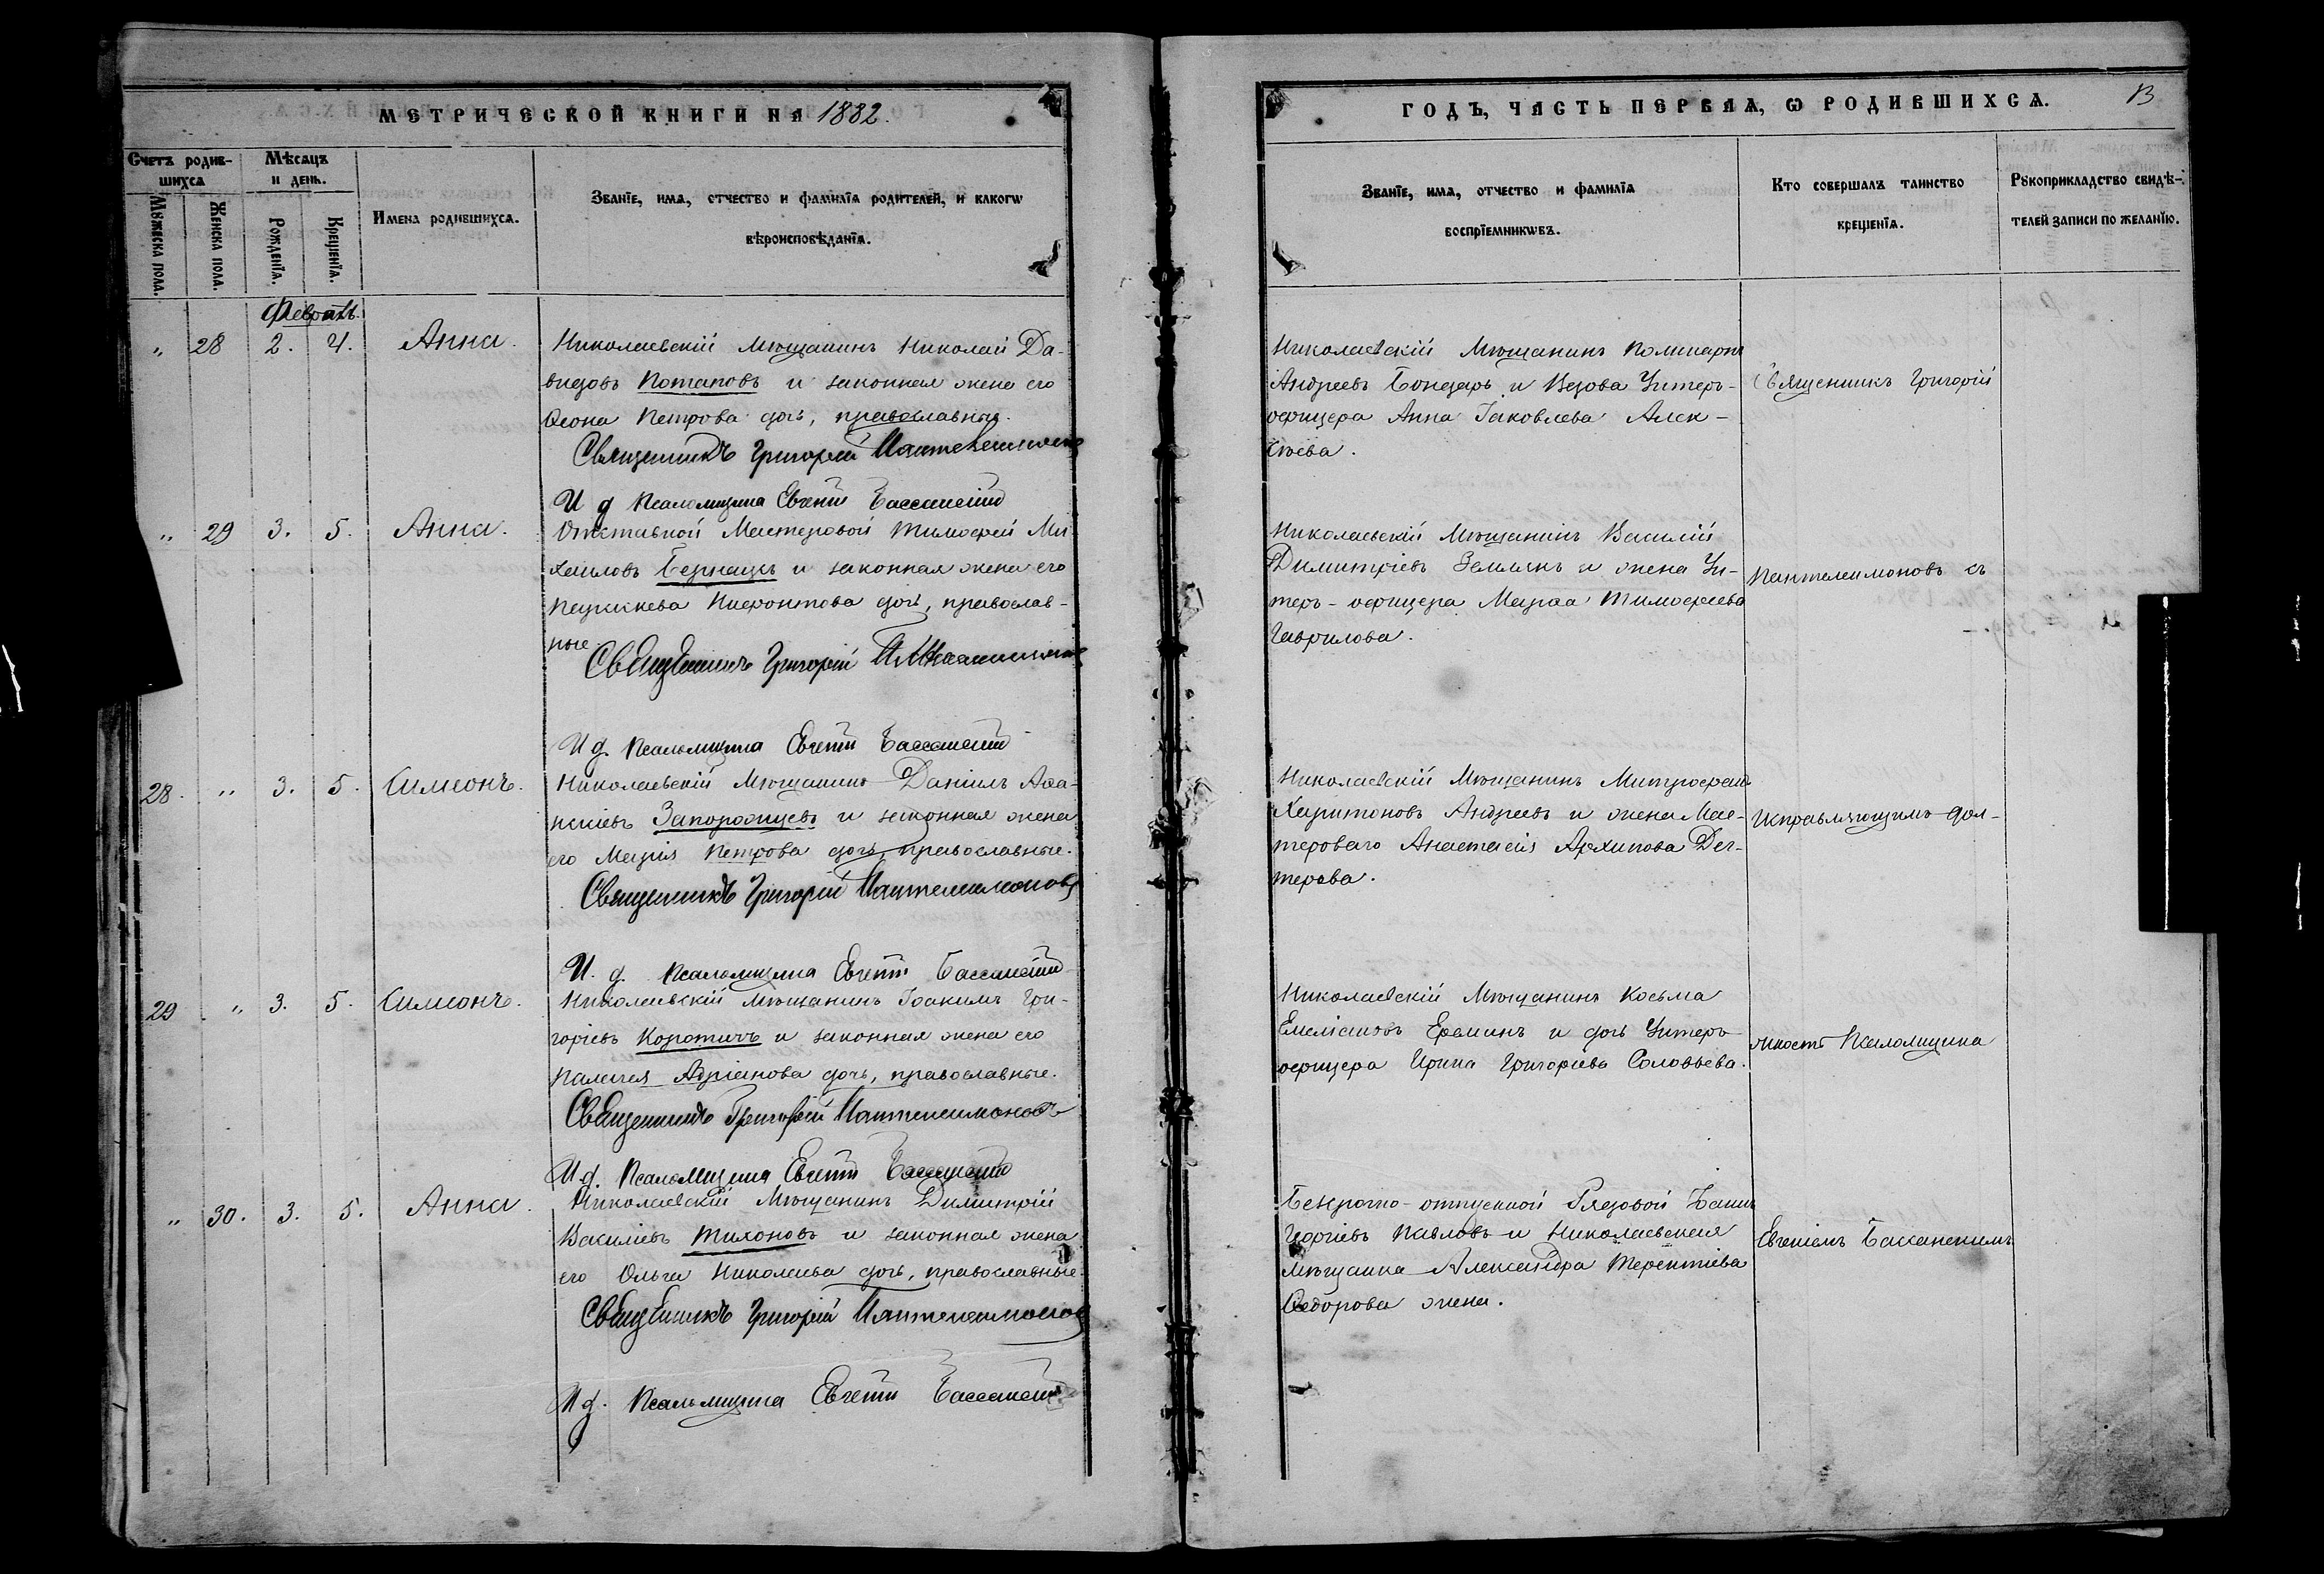 МЕТРИЧЕСКОЙ КНИГИ НА 1882.
Счетъ родив-
шихсѧ
Мѣсѧцъ
и день.
Мꙋжеска пола.
Женска пола.
Рожденїѧ.
Крещенїѧ.
Имена родившихсѧ.
Званїе, имѧ, отчество и фамилїѧ родителей, и какогѡ
вѣроисповѣданїѧ.
Февраль.
„ 28 2. 4. Анна.
Николаевскій Мѣщанинъ Николай Да-
видовъ Потаповъ и законная жена его
Ѳеона Петрова дочь, православные.
Священникъ Григорій Пантелеимоновъ
И д Псаломщика Евгеній Бассанскій
„ 29 3. 5. Анна.
Отставной Мастеровой Тимофей Ми-
хаиловъ Бернацкъ и законная жена его
Параскева Пиѳонтова дочь, православ-
ные
Священникъ Григорій Пантелеимоновъ
И д. Псаломщика Евгеній Бассанскій
28. „ 3. 5. Симеонъ.
Николаевскій Мѣщанинъ Даніилъ Аѳа-
насіевъ Запорожцевъ и законная жена
его Марія Петрова дочь, православные.
Священникъ Григорій Пантелеимоновъ
И. д. Псаломщика Евгеній Бассанскій
29 „ 3. 5. Симеонъ.
Николаевскій Мѣщанинъ Іоакимъ Гри-
горіевъ Коротичъ и законная жена его
Палагея Адріанова дочь, православные.
Священникъ Григорій Пантелеимоновъ
И д. Псаломщика Евгеній Бассанскій
„ 30. 3. 5. Анна.
Николаевскій Мѣщанинъ Димитрій
Василіевъ Тихоновъ и законная жена
его Ольга Николаева дочь, православные.
Священникъ Григорій Пантелеимоновъ
И д. Псаломщика Евгеній Бассанскій
ГОДЪ, ЧАСТЬ ПЕРВАѦ, Ѡ РОДИВШИХСѦ.
13
Званїе, имѧ, отчество и фамилїѧ
воспрїемникѡвъ.
Кто совершалъ таинство
крещенїѧ.
Рꙋкоприкладство свидѣ-
телей записи по желанїю.
Николаевскій Мѣщанинъ Поликарпъ
Андреевъ Бондарь и Вдова Унтеръ-
офицера Анна Іаковлева Алек-
сѣева.
Николаевскій Мѣщанинъ Василій
Димитріевъ Землякъ и жена Ун-
теръ-офицера Марѳа Тимофеева
Гаврилова.
Николаевскій Мѣщанинъ Митрофанъ
Харитоновъ Андреевъ и жена Мас-
тероваго Анастасія Архипова Дег-
терева.
Николаевскій Мѣщанинъ Косьма
Емеліановъ Ереминъ и дочь Унтеръ
офицера Ирина Григоріева Соловьева.
Безсрочно-отпускной Рядовой
Георгіевъ Павловъ и Николаевская
мѣщанка Александра Терентіева
Ѳедорова жена.
Священникъ Григорій
Пантелеимоновъ съ
исправляющимъ дол-
жность Псаломщика
Евгеніемъ Бассанскимъ